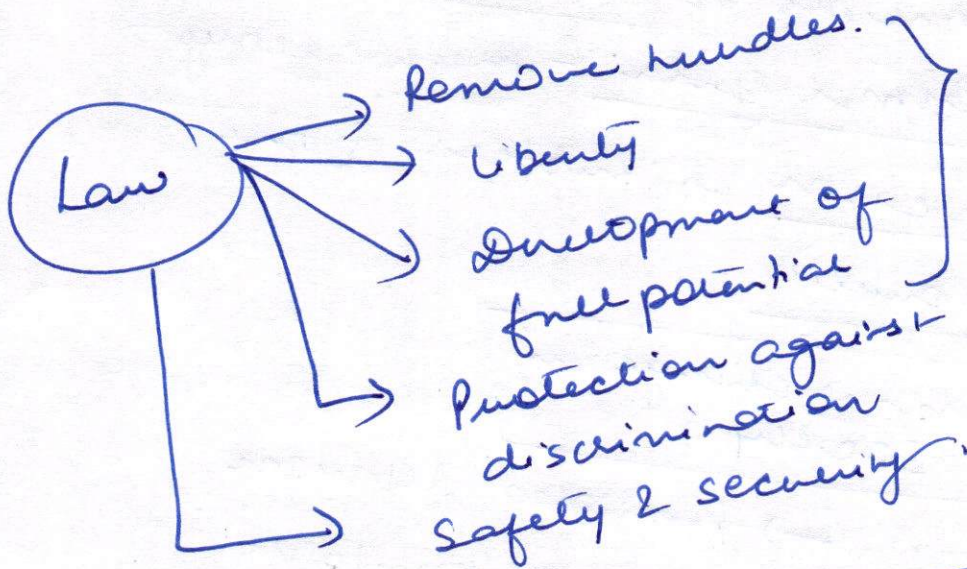 Law
Remove hurdles.
Liberty
Development of
full potential
Protection against
discrimination
Safety & security